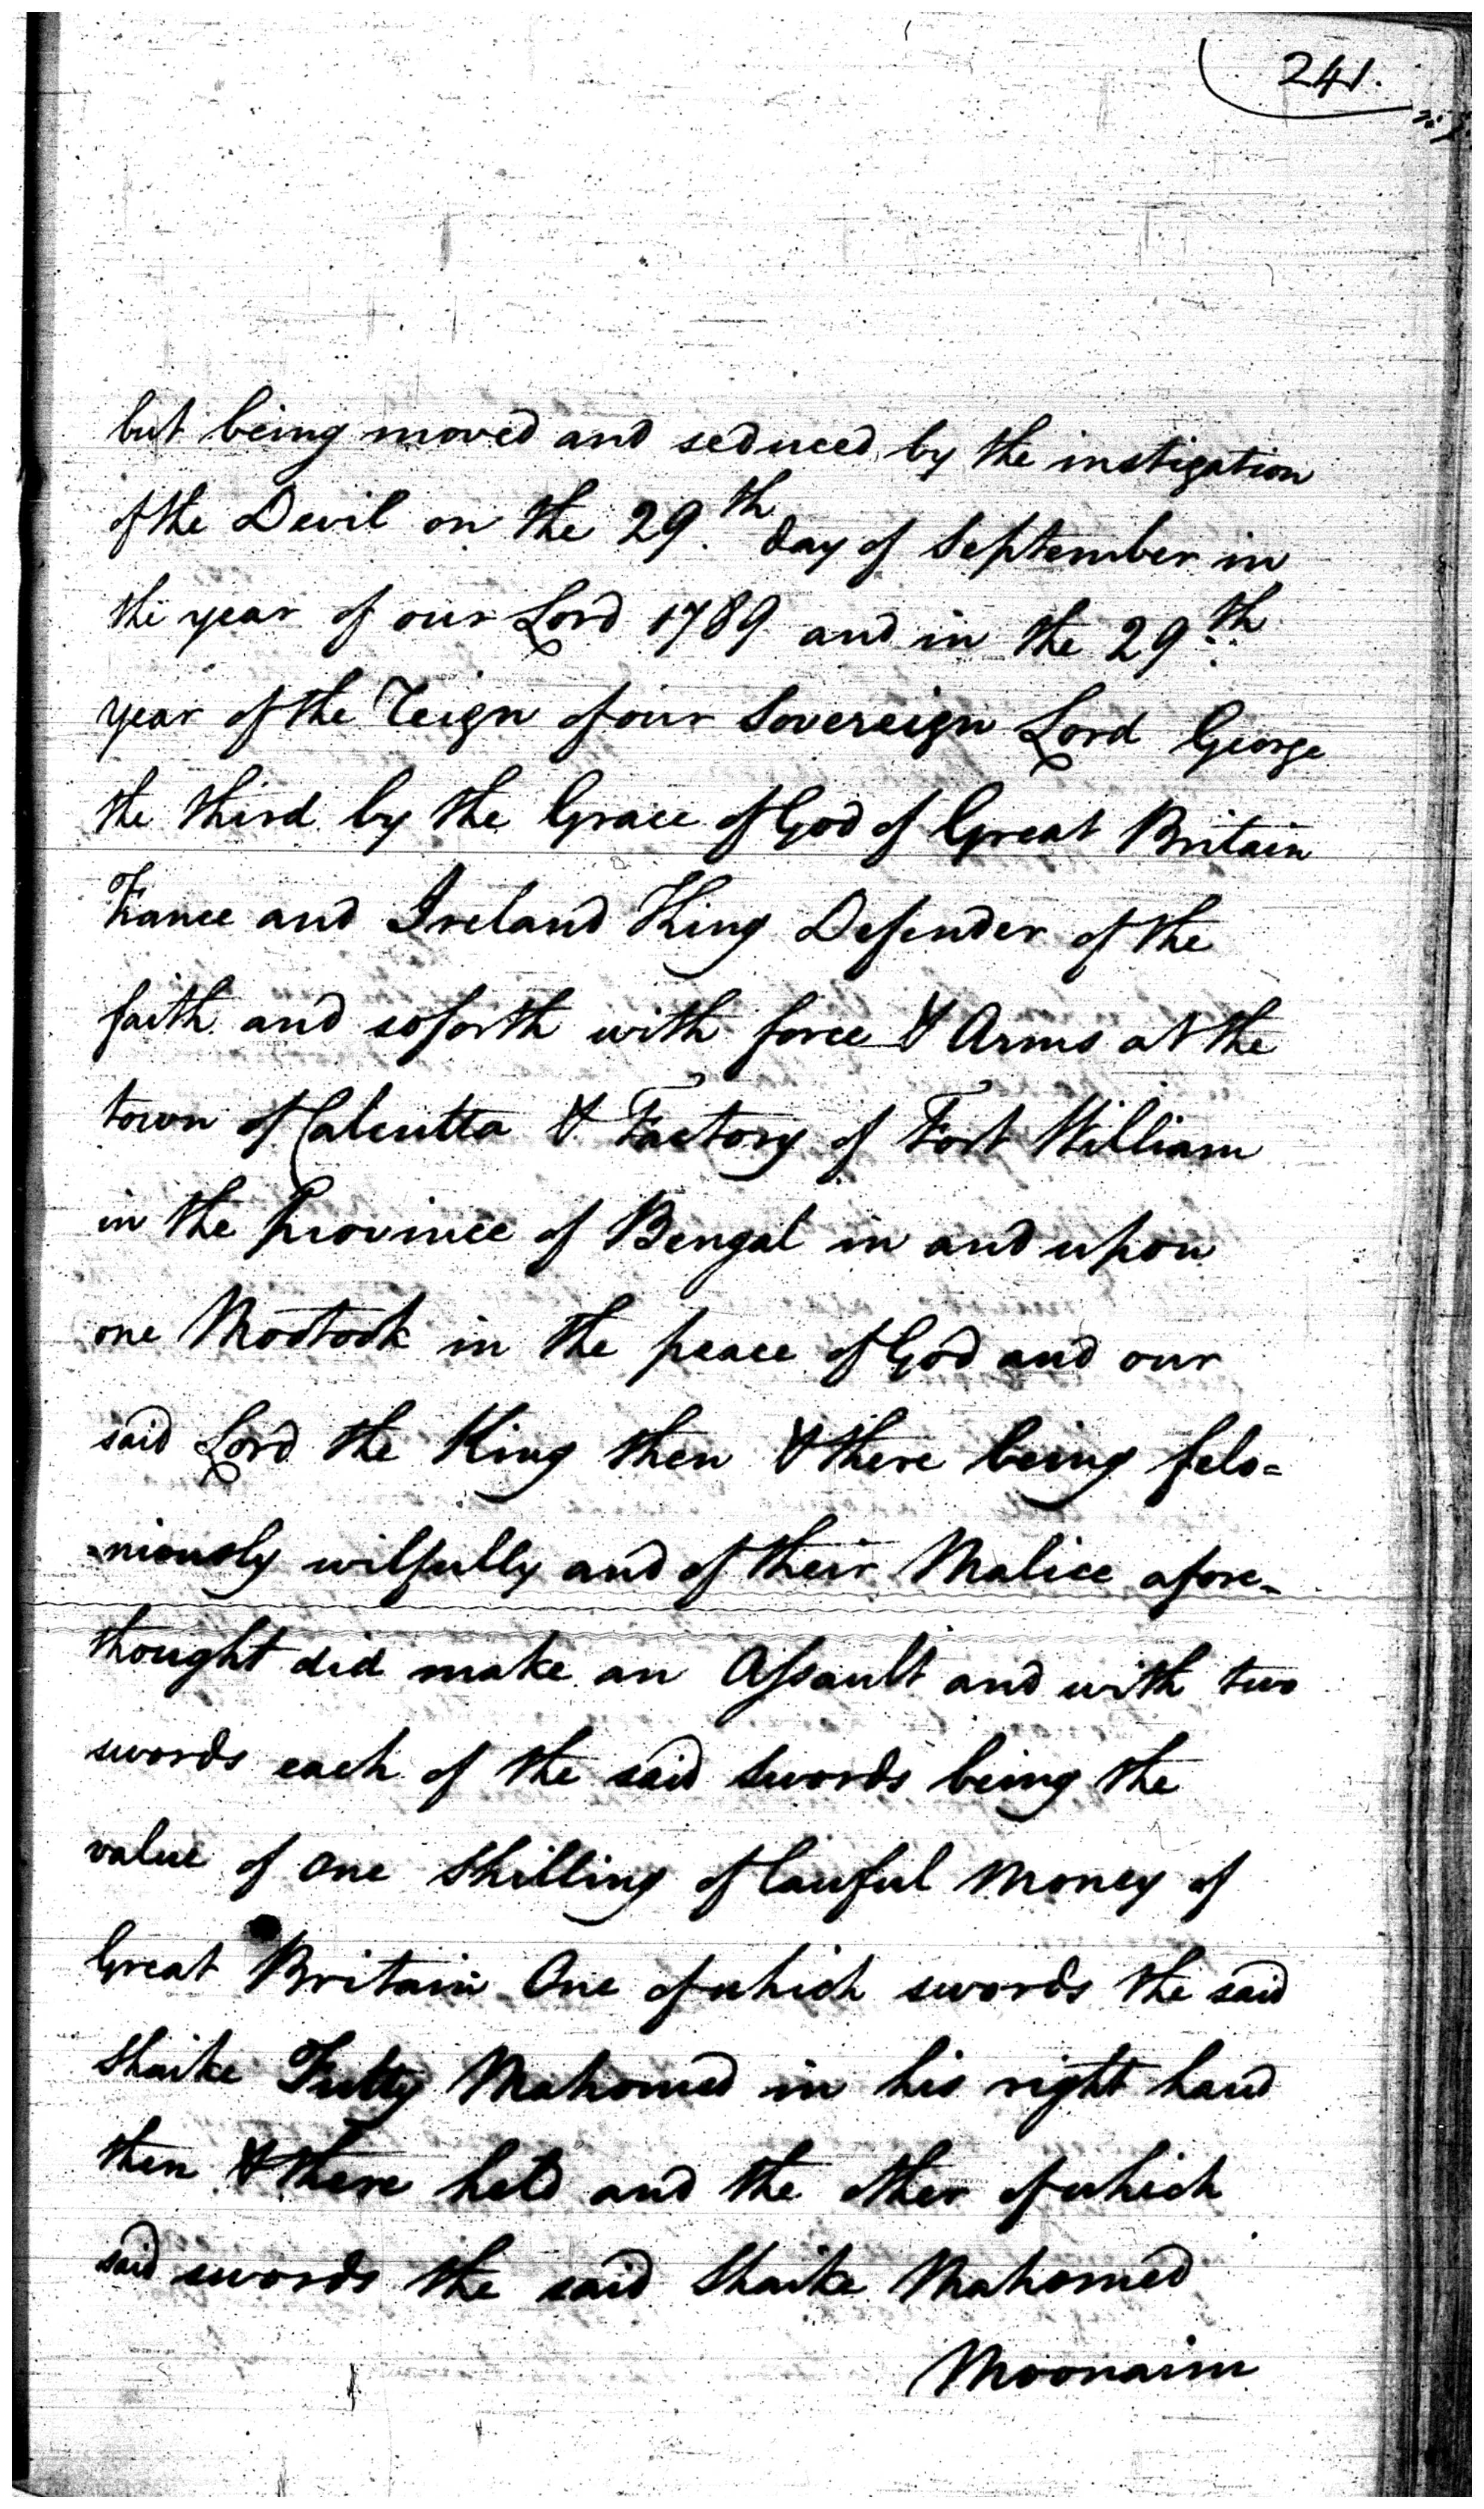 241.
but being moved and seduced by the instigation
of the Devil on the 29th day of September in
the year of our Lord 1789 and in the 29th
year of the Reign of our Sovereign Lord George
the third by the Grace of God of Great Britain
France and Ireland King Defender of the
faith and soforth with force & Arms at the
town of Calcutta & Factory of Fort William
in the Province of Bengal in and upon
one Mootook in the peace of God and our
said Lord the King then & there being felo=
=niously wilfully and of their Malice afore=
thought did make an Assault and with two
swords each of the said Swords being the
value of one Shilling of lawful Money of
Great Britain One of which swords the said
Shaike Futty Mahomed in his right hand
then & there held and the other of which
said swords the said Shaike Mahomed
Moonaim